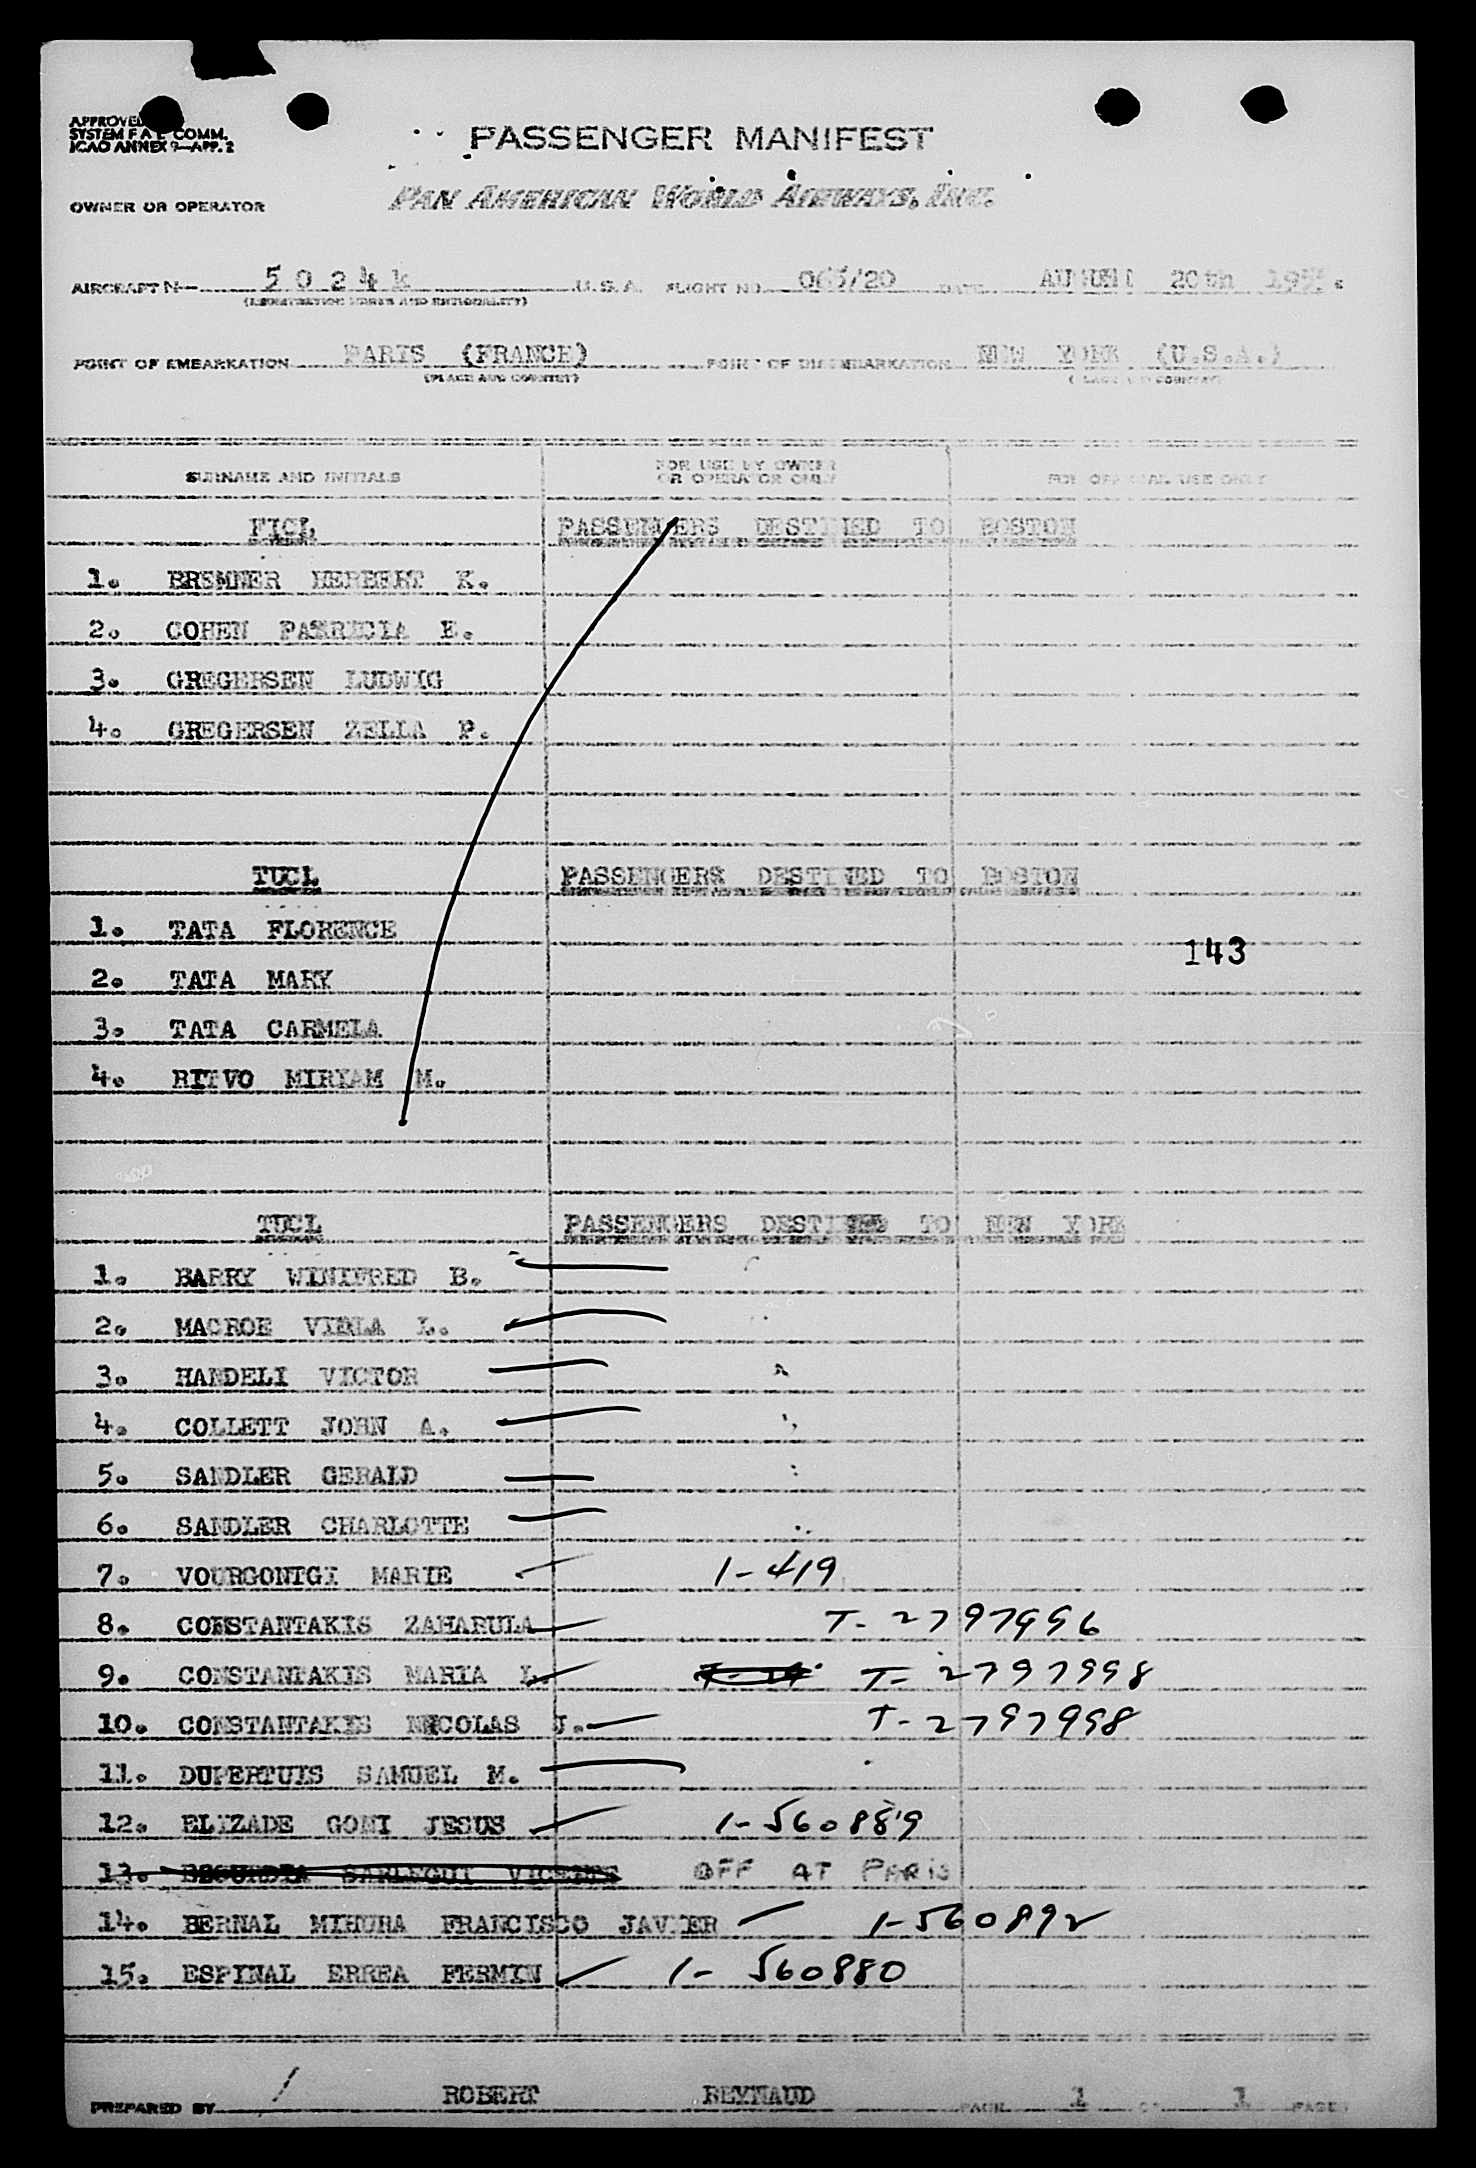 APPROVED
SYSTEM F A L COMM.
ICAO ANNEX 9—APP. 2
PASSENGER MANIFEST
OWNER OR OPERATOR PAN AMERICAN WORLD AIRWAYS, INC.
AIRCRAFT N— 5024k U.S.A. FLIGHT NO. 065/20 DATE AUGUST 20th
(REGISTRATION MARKS AND NATIONALITY)
POINT OF EMBARKATION PARIS (FRANCE) POINT OF DISEMBARKATION NEW YORK (U.S.A.)
(PLACE AND COUNTRY) (PLACE AND COUNTRY)
SURNAME AND INITIALS FOR USE BY OWNER OR OPERATOR ONLY FOR OFFICIAL USE ONLY
FICL PASSENGERS DESTINED TO BOSTON
1. BREMNER HERBERT K.
2. COHEN PATRICIA E.
3. GREGERSEN LUDWIG
4. GREGERSEN ZELLA P.
TUCL PASSENGERS DESTINED TO BOSTON
1. TATA FLORENCE
143
2. TATA MARY
3. TATA CARMELA
4. RITVO MIRYAM M.
TUCL PASSENGERS DESTINED TO NEW YORK
1. BARRY WINIFRED B.
2. MACROE VIELA L.
3. HANDELI VICTOR
4. COLLETT JOHN A.
5. SANDLER GERALD
6. SANDLER CHARLOTTE
7. VOURGONIGI MARIE 1-419
8. CONSTANTAKIS ZAHARULA T-2797996
9. CONSTANTAKIS MARIA L. T-2797998
10. CONSTANTAKIS NICOLAS J. T-2797998
11. DUPERTUIS SAMUEL M.
12. ELIZADE GONI JESUS 1-560889
13. SARLEGUI OFF AT PARIS
14. BERNAL MIHURA FRANCISCO JAVIER 1-560892
15. ESPINAL ERREA FERMIN 1-560880
PREPARED BY ROBERT REYNAUD PAGE 1 OF 1 PAGES